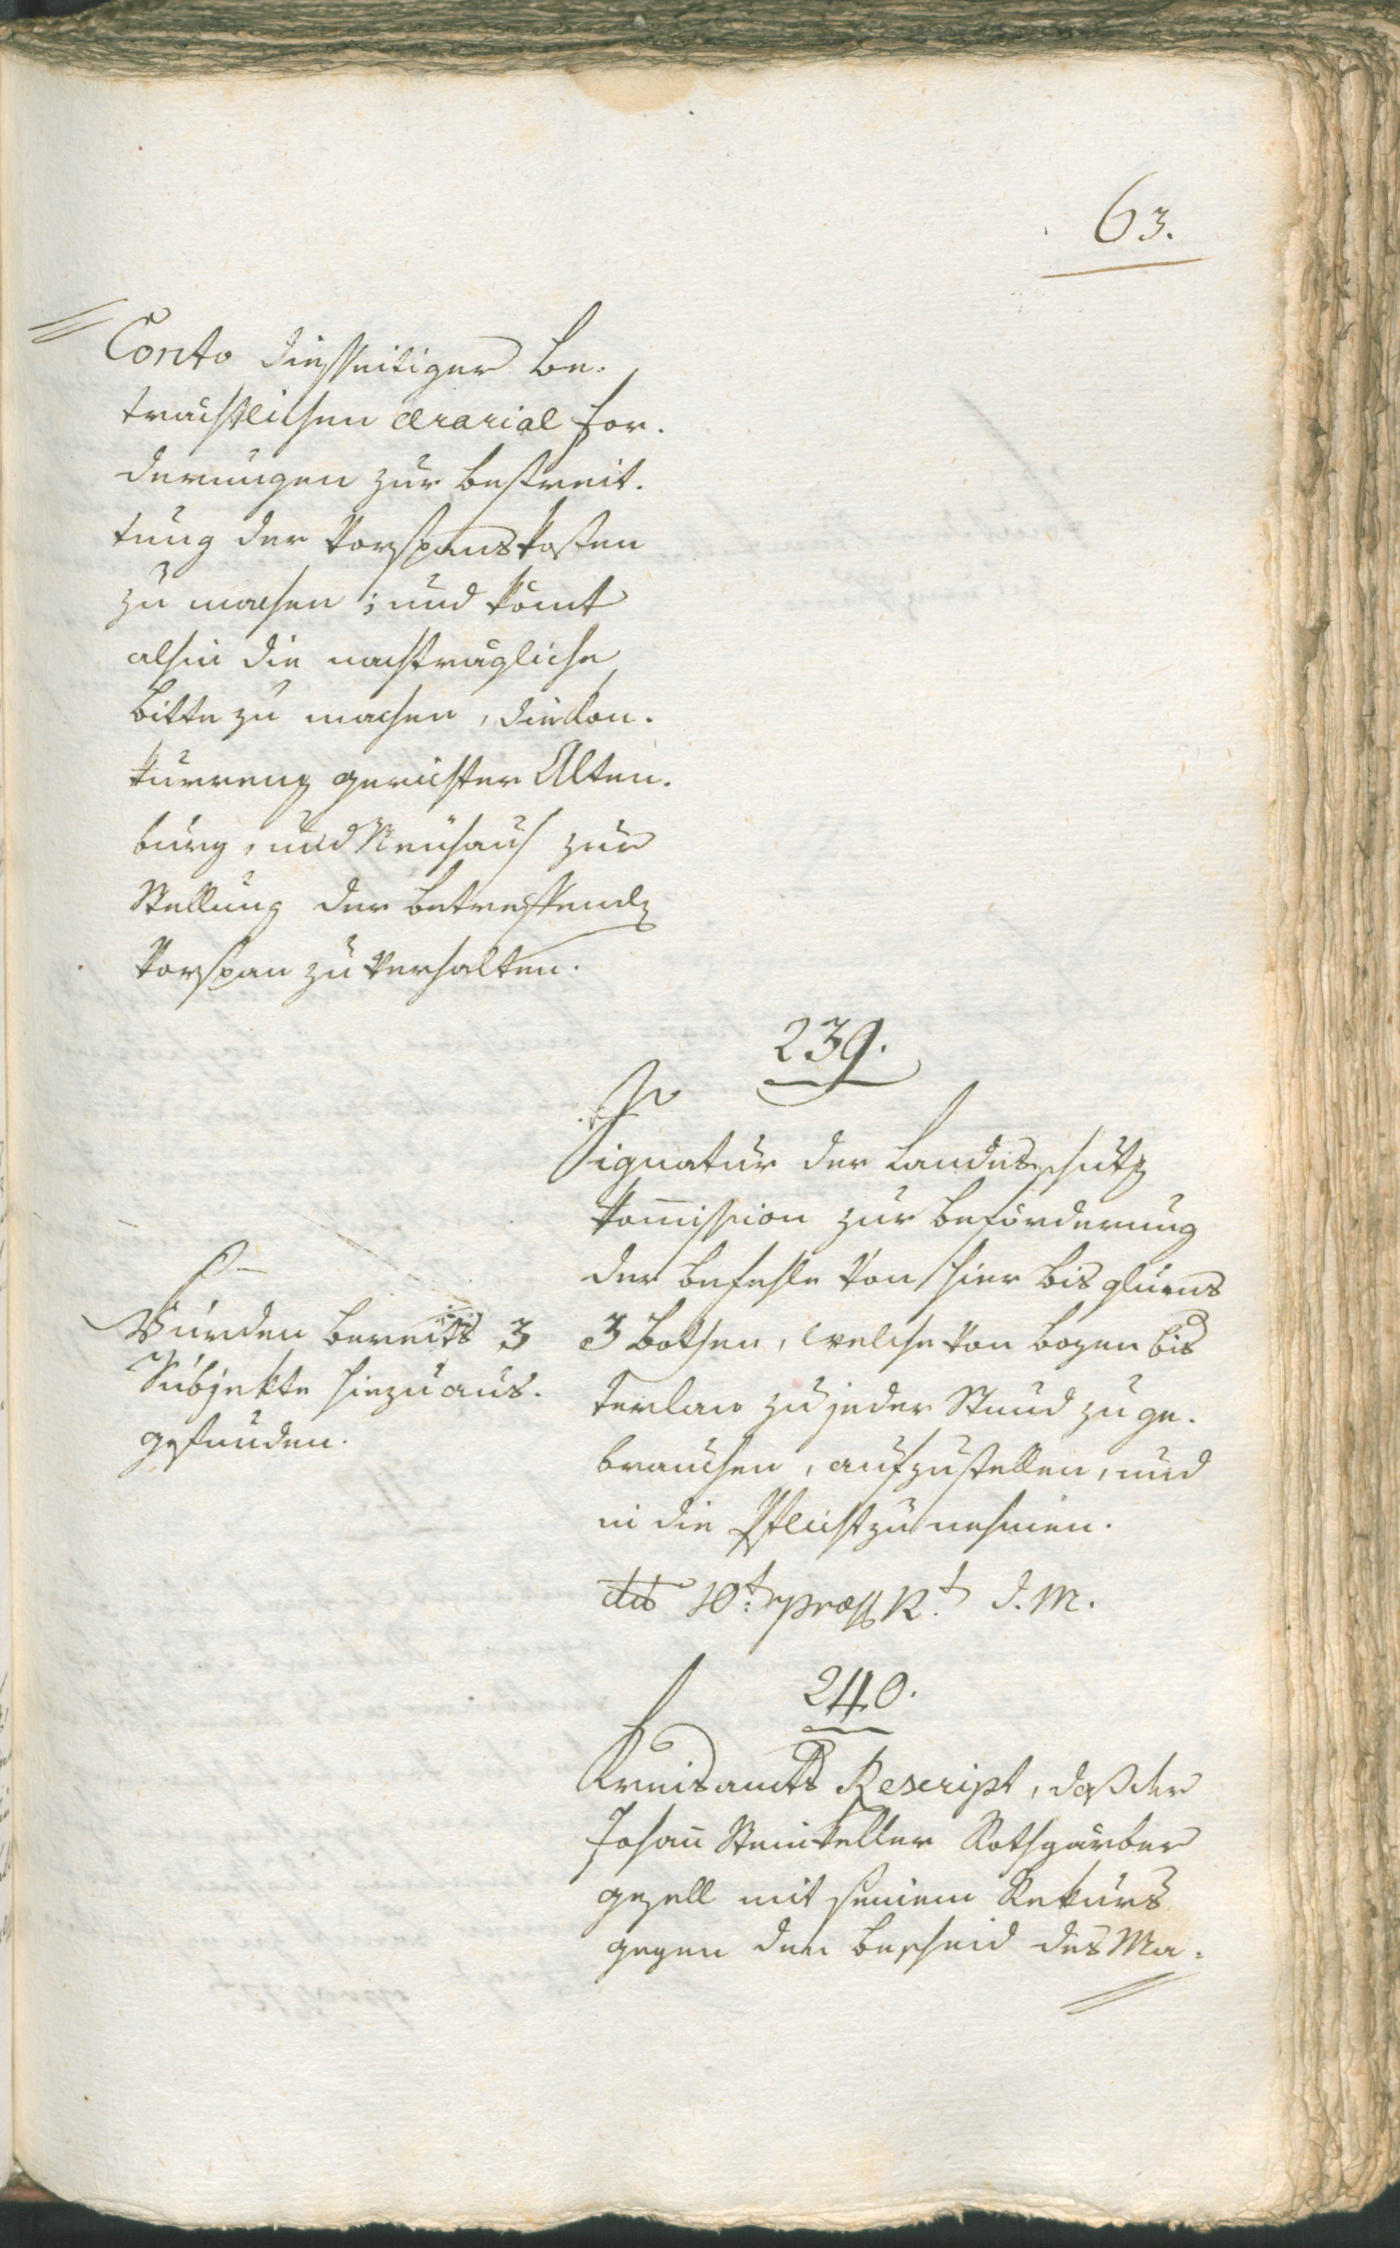 63.
Conto diesseitiger be-
trächtlichen Ærarial for-
derungen zur bestreit-
tung der Vorspanskosten
zu machen; und kömt
alhin die nachträgliche
bitte zu machen, die Kon-
kurrenz gerichter Alten-
burg, und Neuhaus zur
Stellung der betreffendn
Vorspan zu verhalten.
239.
Signatur der Landesschutz
Kom̅ission zur beförderung
der befehle von hier bis glurns
3 bothen, welche von bozen bis
Terlan zu jeder Stund zu ge-
brauchen, aufzustellen, und
in die Pflicht zu nehmen.
dto 10t præss 12t d. M.
Würden bereits 3
Subjekte hiezu aus-
gefunden.
240.
Kreisamts Rescript, daß der
Johan̅ Steinkeller Rothgärber
gesell mit seinem Rekurs
gegen den bescheid des Ma-